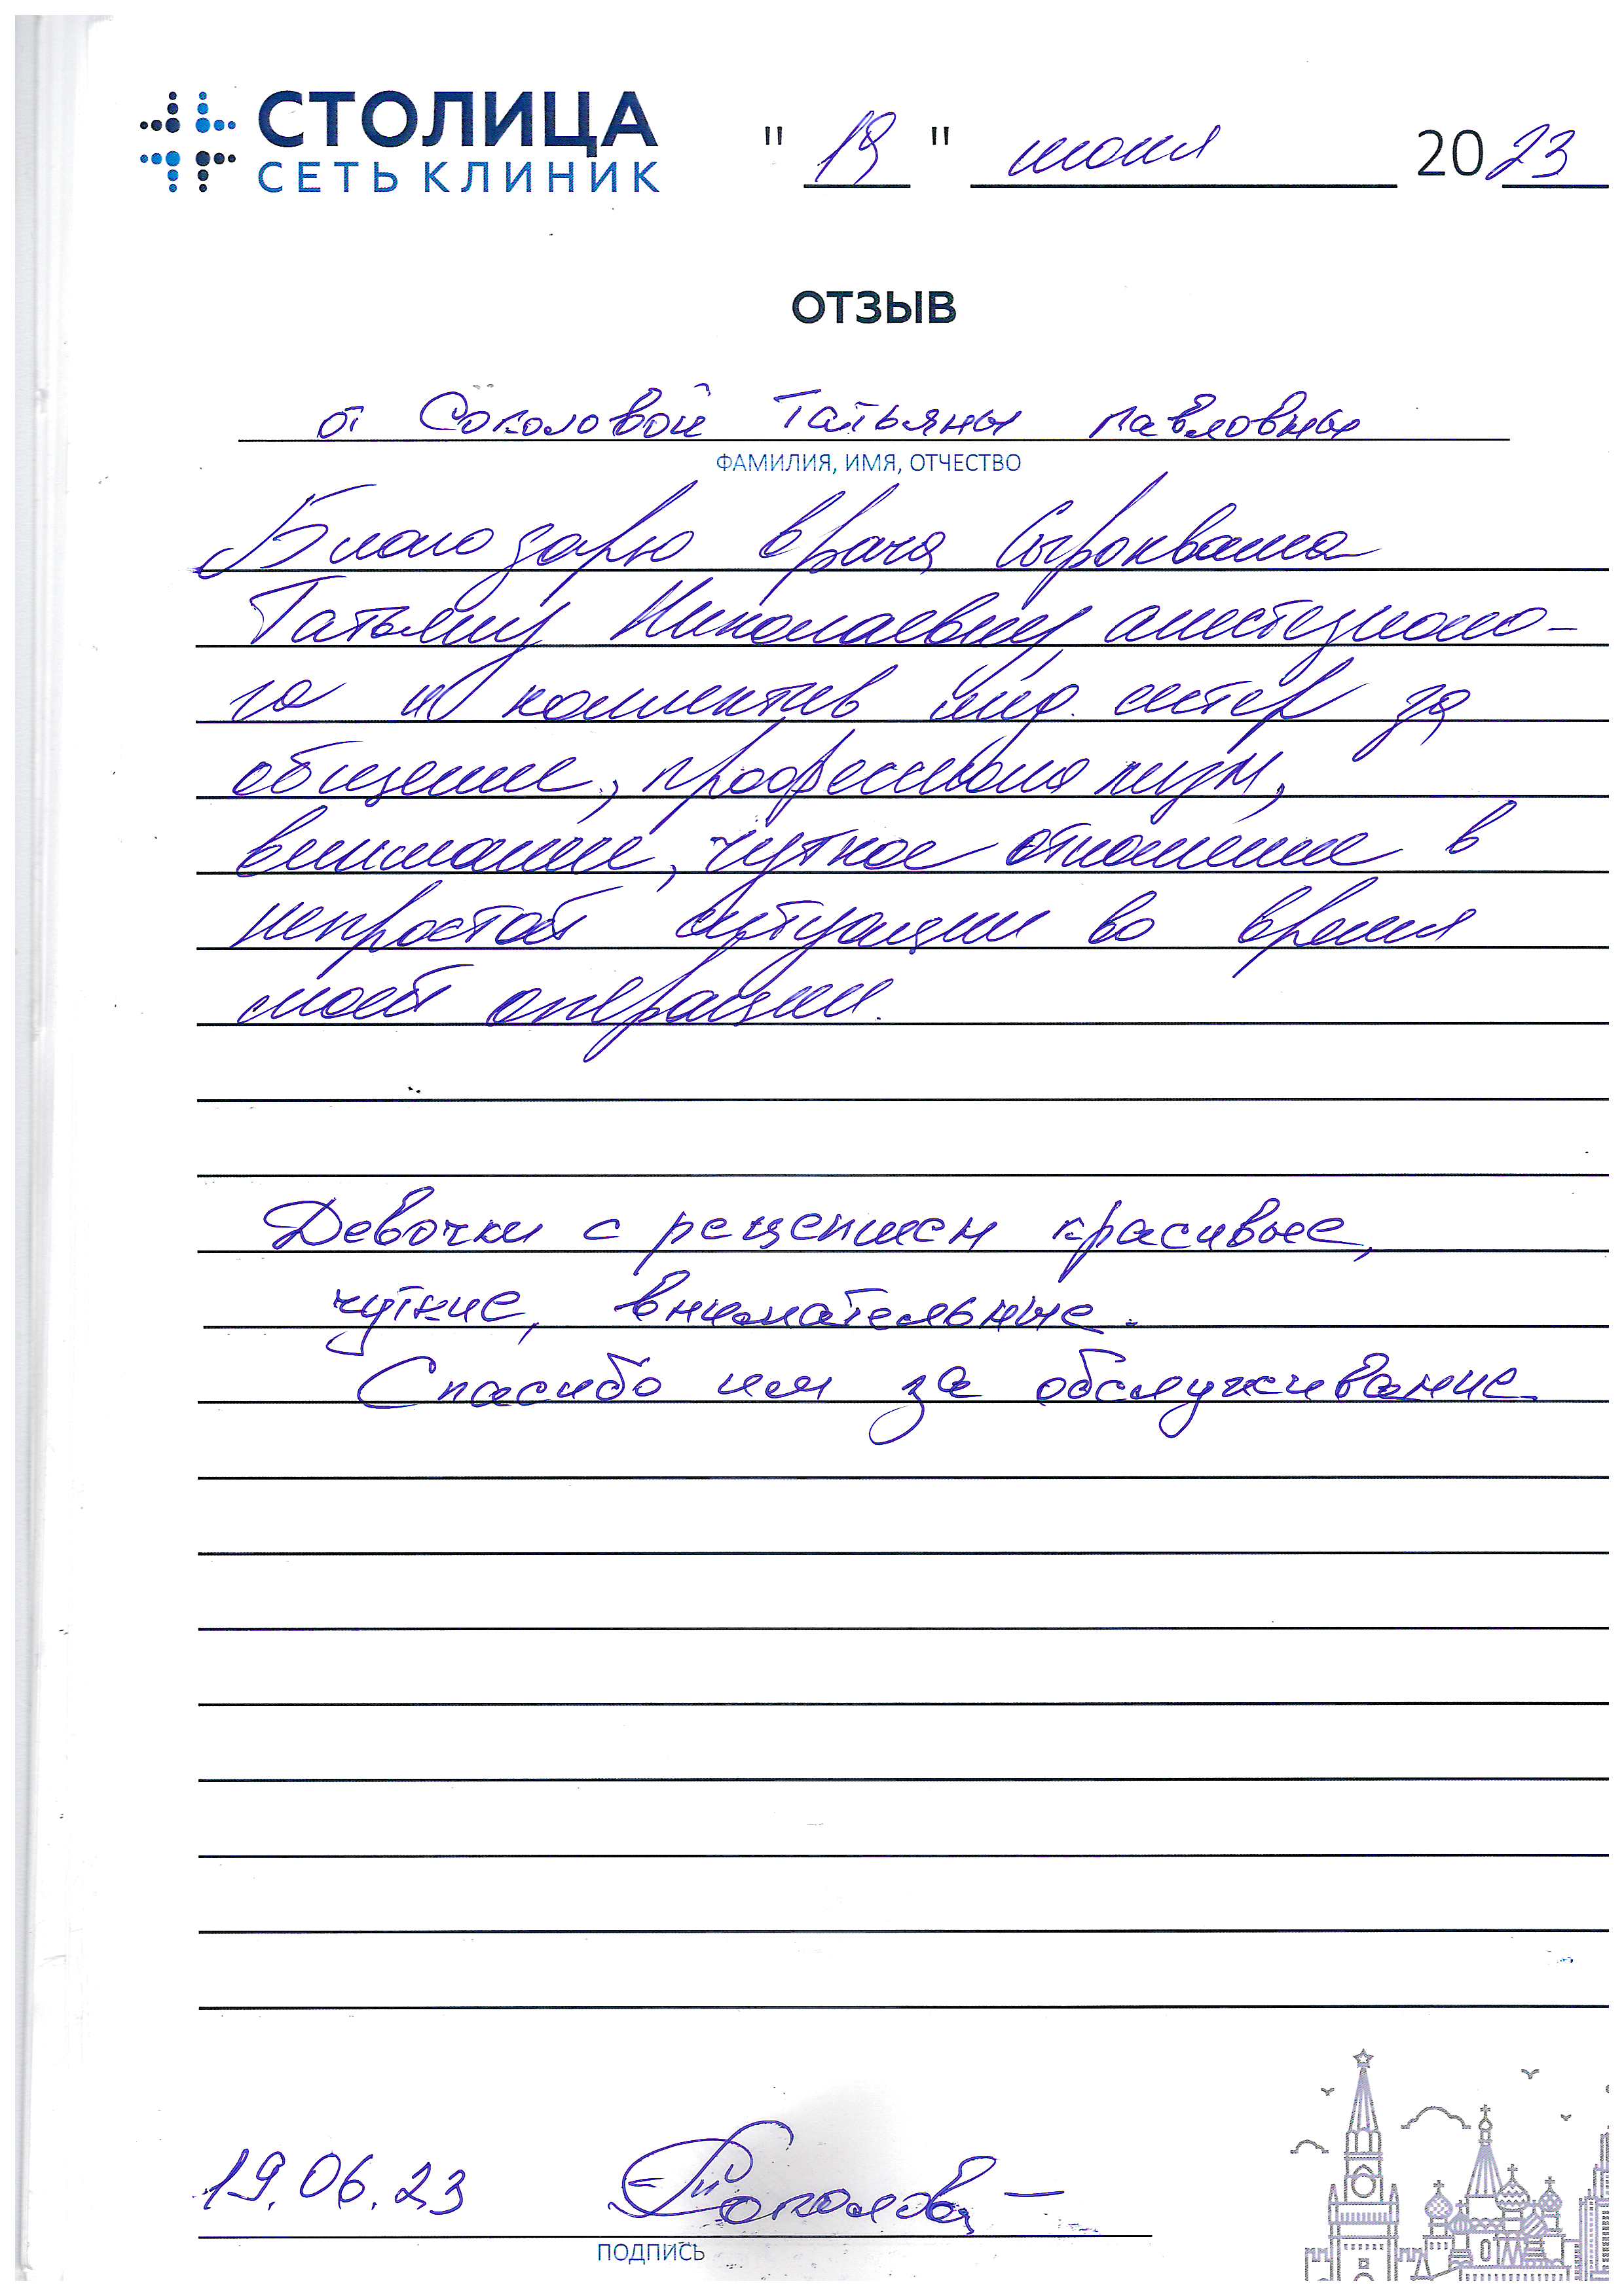 СТОЛИЦА
СЕТЬ КЛИНИК
" 19 " июня 2023
ОТЗЫВ
от Соколовой Татьяны Павловны
ФАМИЛИЯ, ИМЯ, ОТЧЕСТВО
Благодарю врача Сырокваша
Татьяну Николаевну анестезиоло-
га и коллектив мед. сестер за
общение, профессионализм,
внимание, чуткое отношение в
непростой ситуации во время
моей операции.
Девочки с рецепшен красивые,
чуткие, внимательные.
Спасибо им за обслуживание.
19.06.23 Соколова
ПОДПИСЬ